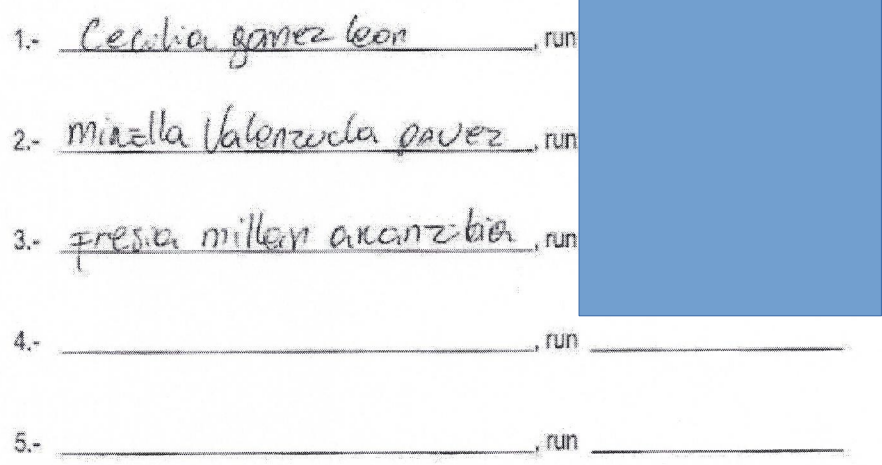 1.- Cecilia gamez leon, run
2.- Valenzuela pavez, run
3.- Fresia millan aranzibia, run
4.- , run
5.- , run